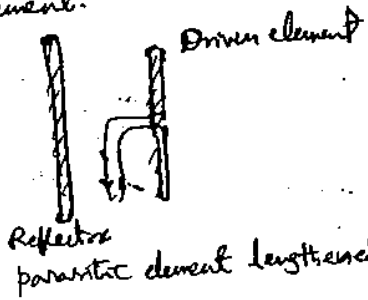 Driven element
Reflector
parasitic element lengthened